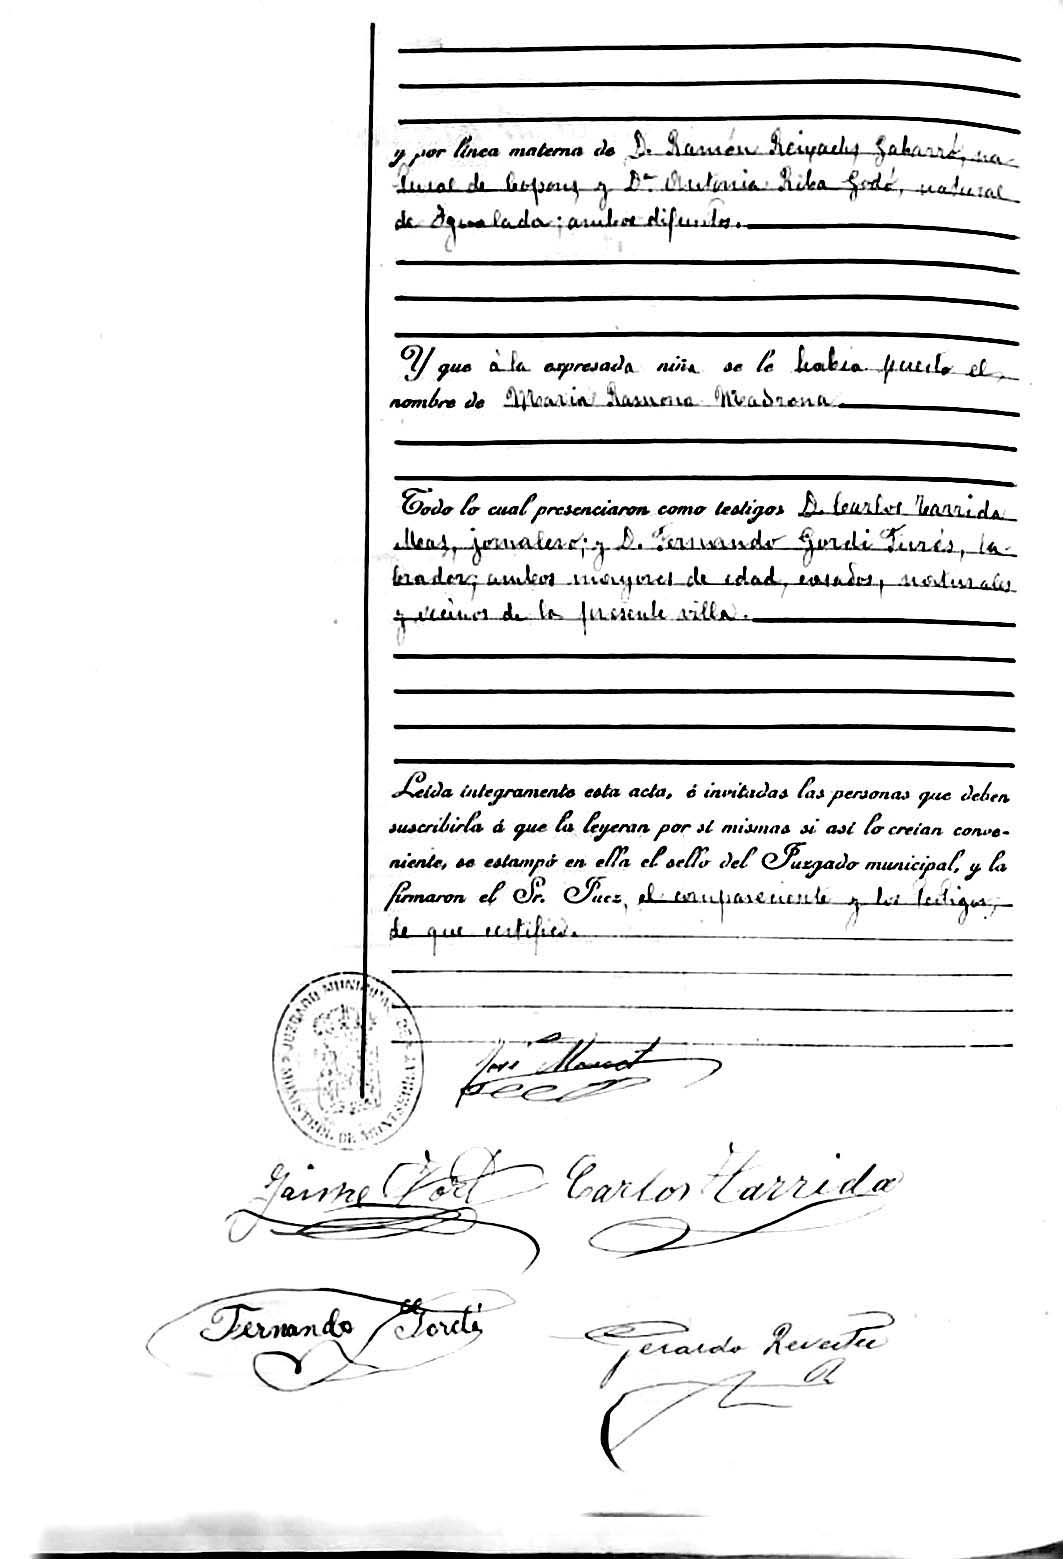 y por línea materna de D. Ramón Reixachs Gabarró, na-
tural de Copons, y Dª Antonia Riba Godó, natural
de Igualada; ambos difuntos.
Y que á la expresada niña se le había puesto el
nombre de María Ramona Madrona.
Todo lo cual presenciaron como testigos D. Carlos Tarrida
Mas, jornalero; y D. Fernando Gordi Turés, la-
brador; ambos mayores de edad, casados, naturales
y vecinos de la presente villa.
Leída integramente esta acta, é invitadas las personas que deben
suscribirla á que la leyeran por sí mismas si así lo creían conve-
niente, se estampó en ella el sello del Juzgado municipal, y la
firmaron el Sr. Juez, el compareciente y los testigos,
de que certifico.
JUZGADO MUNICIPAL DE MONISTROL DE MONTSERRAT
José
Jaime Carlos Tarrida
Fernando Gordi
Gerardo Reverter